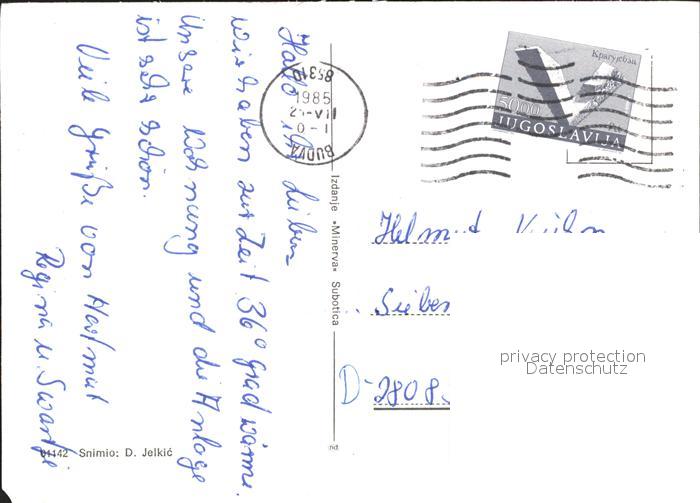 Hallo ihr Lieben
wir haben zur Zeit 36° grad wärme.
Unsere Wohnung und die Anlage
ist sehr schön.
Viele Grüße von Hartmut
Regina u. Swantje
85310
1985
BUDVA
Izdanje »Minerva« Subotica
Крагујевац
5000
JUGOSLAVIJA
Helmut
Sieben
D-2808
privacy protection
Datenschutz
61142 Snimio: D. Jelkić